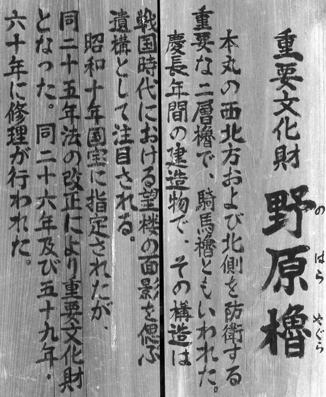 重要文化財
野原櫓
のはらやぐら
本丸の西北方および北側を防衛する
重要な二層櫓で、騎馬櫓ともいわれた。
慶長年間の建造物で、その構造は
戦国時代における望楼の面影を偲ぶ
遺構として注目される。
昭和十年国宝に指定されたが、
同二十五年法の改正により重要文化財
となった。同二十六年及び五十九年・
六十年に修理が行われた。